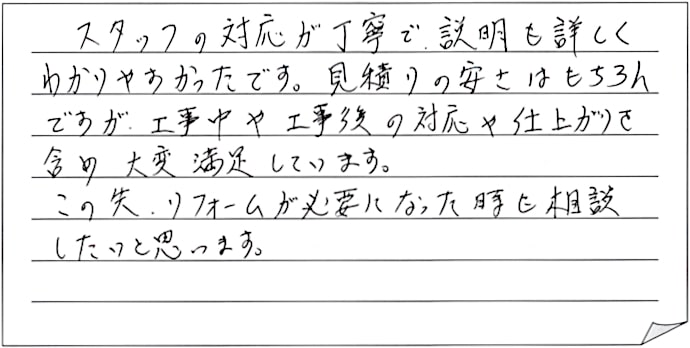 スタッフの対応が丁寧で、説明も詳しく
わかりやすかったです。見積りの安さはもちろん
ですが、工事中や工事後の対応や仕上がりを
含め 大変満足しています。
この先、リフォームが必要になった時も相談
したいと思います。